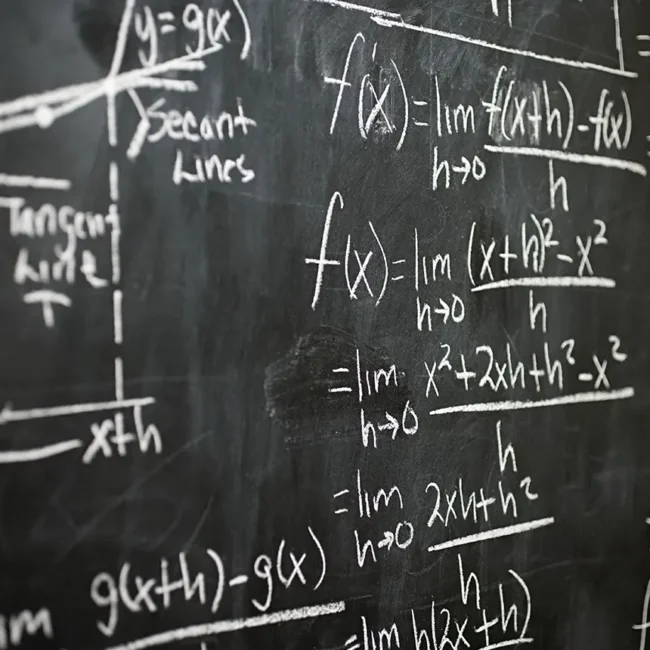 y = g(x)
Secant
Lines
Tangent
Line
T
x+h
g(x+h)-g(x)
f'(x) = lim h→0 f(x+h)-f(x) / h
f(x) = lim h→0 (x+h)²-x² / h
= lim h→0 x²+2xh+h²-x² / h
= lim h→0 2xh+h² / h
= lim h(2x+h)